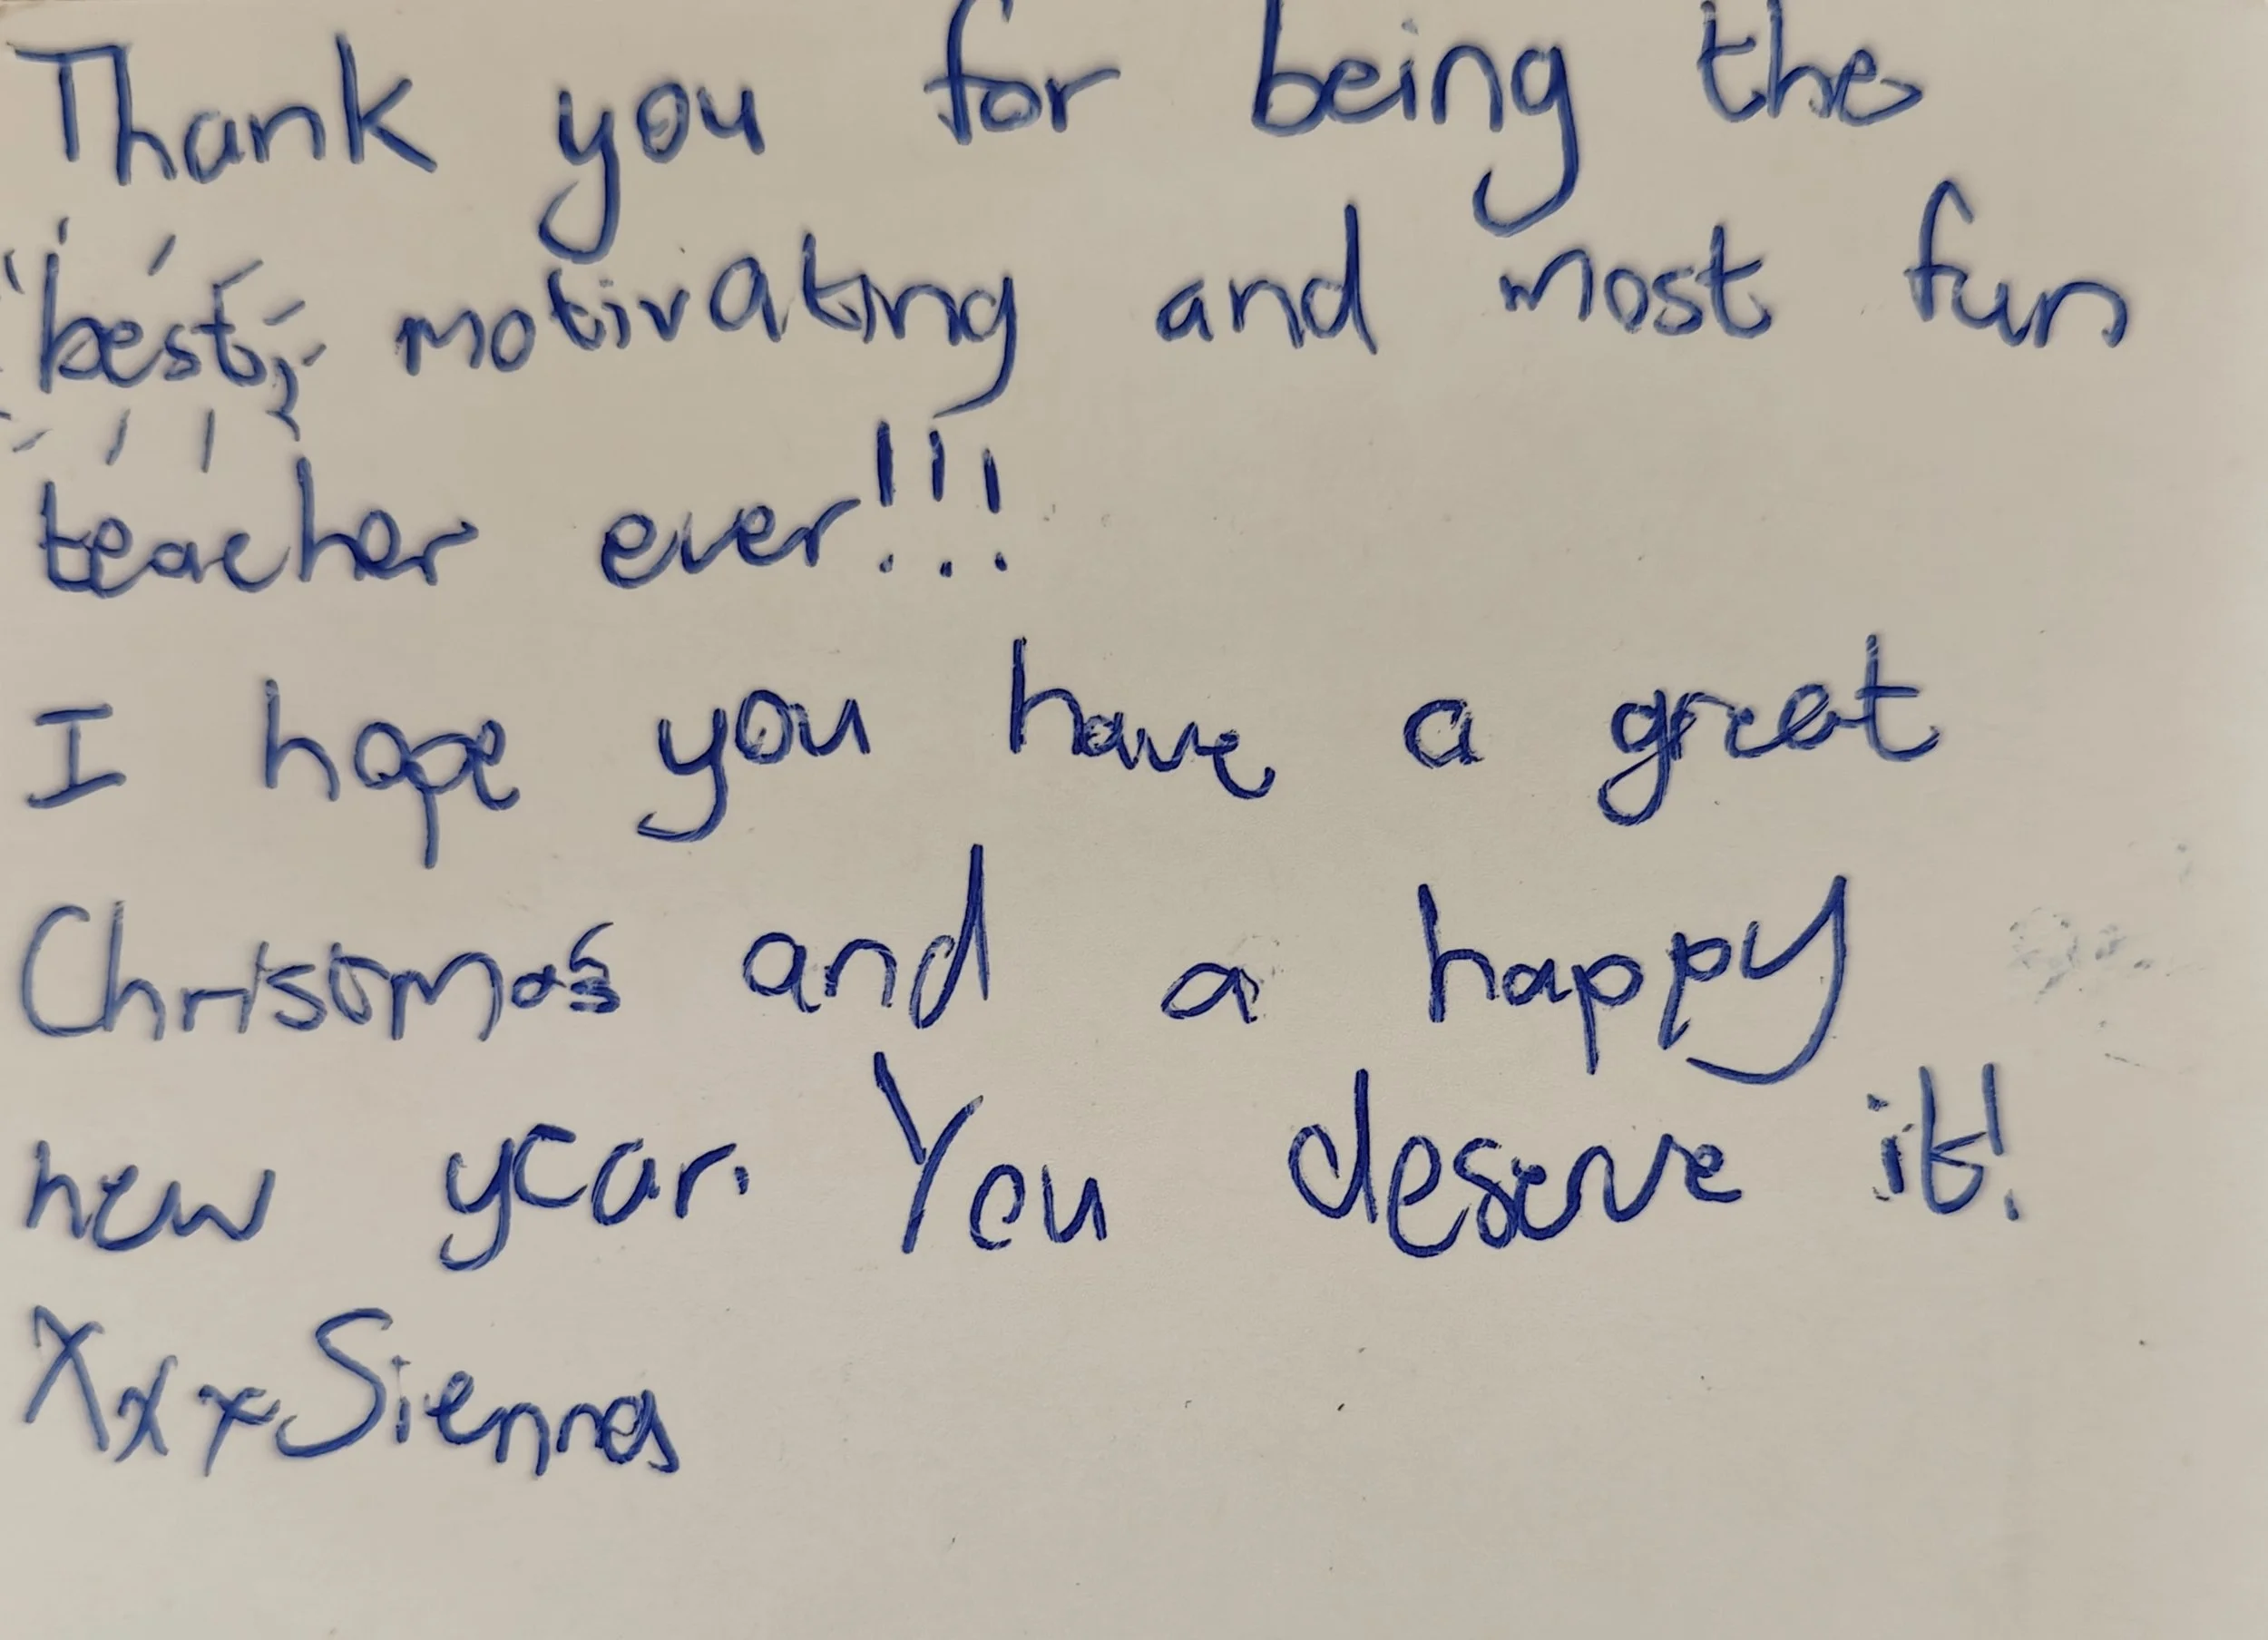 Thank you for being the
best, motivating and most fun
teacher ever!!!
I hope you have a great
Christmas and a happy
new year. You deserve it!
Xxx Sienna